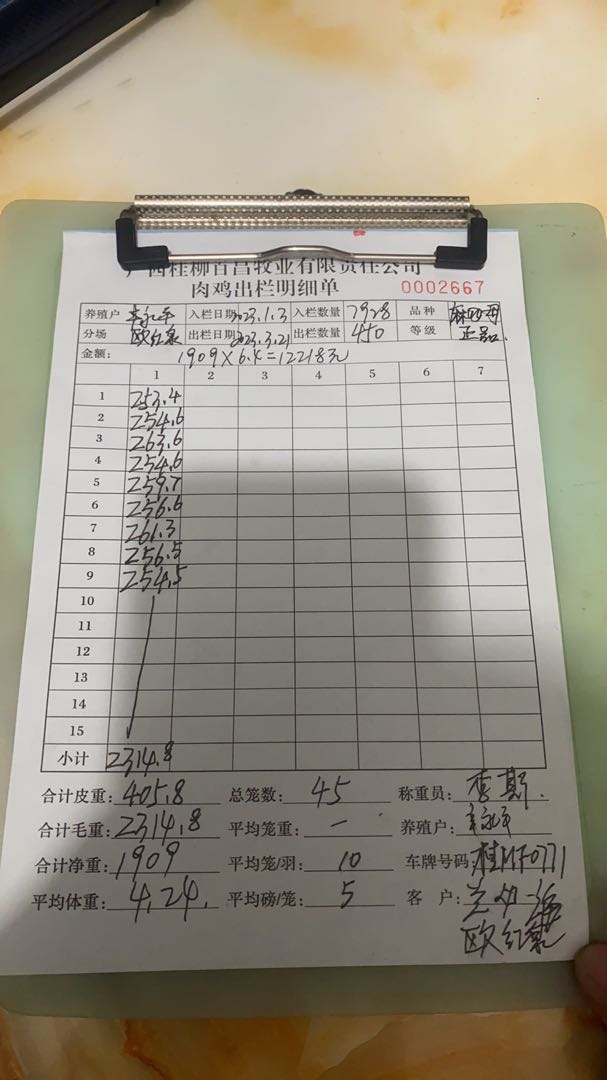 西桂柳百昌牧业有限责任公司
肉鸡出栏明细单 0002667
养殖户 入栏日期 2023.1.3 入栏数量 7928 品种
分场 欧红 出栏日期 2023.3.21 出栏数量 450 等级 正品.
金额: 1909×6.4=12218元
1 2 3 4 5 6 7
1 253.4
2 254.6
3 263.6
4 254.6
5 259.7
6 256.6
7 261.3
8 256.5
9 254.5
10
11
12
13
14
15
小计 2314.8
合计皮重: 405.8 总笼数: 45 称重员: 李斯.
合计毛重: 2314.8 平均笼重: — 养殖户:
合计净重: 1909 平均笼/羽: 10 车牌号码:
平均体重: 4.24. 平均磅/笼: 5 客户:
欧红